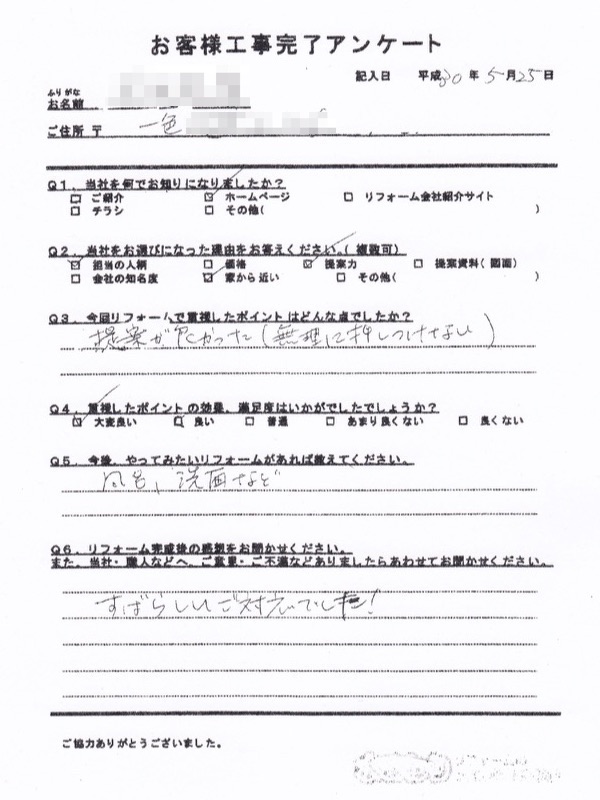 お客様工事完了アンケート
記入日 平成30年5月25日
ふりがな
お名前
ご住所 〒 一色
Q1、当社を何でお知りになりましたか?
□ ご紹介 ☑ ホームページ □ リフォーム会社紹介サイト
□ チラシ □ その他( )
Q2、当社をお選びになった理由をお答えください。(複数可)
☑ 担当の人柄 □ 価格 ☑ 提案力 □ 提案資料(図面)
□ 会社の知名度 ☑ 家から近い □ その他( )
Q3、今回リフォームで重視したポイントはどんな点でしたか?
提案が良かった(無理に押しつけない)
Q4、重視したポイントの効果、満足度はいかがでしたでしょうか?
☑ 大変良い □ 良い □ 普通 □ あまり良くない □ 良くない
Q5、今後、やってみたいリフォームがあれば教えてください。
風呂、洗面など
Q6、リフォーム完成後の感想をお聞かせください。
また、当社・職人などへ、ご意見・ご不満などありましたらあわせてお聞かせください。
すばらしいご対応でした!
ご協力ありがとうございました。